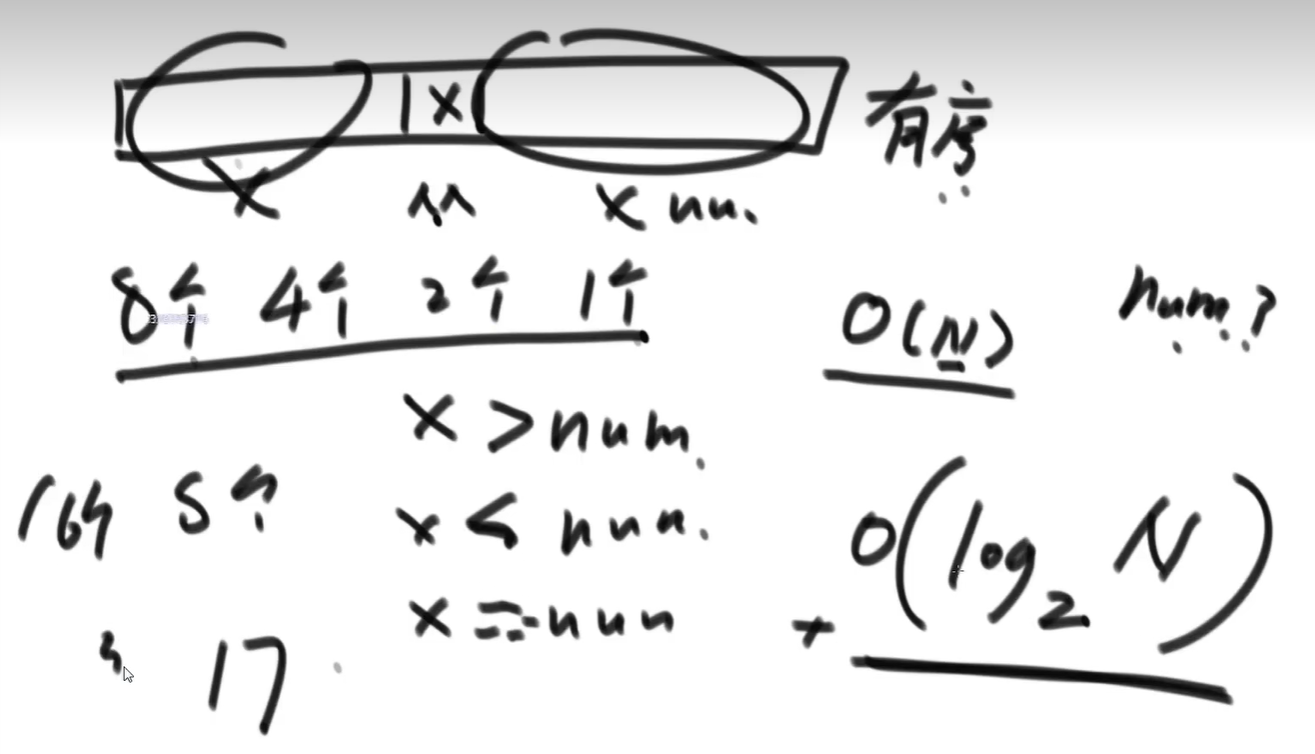 x 有序
x m x num.
8个 4个 2个 1个
O(N) num?
x > num
x < num.
x == num
16个 5个
O(log₂ N)
17